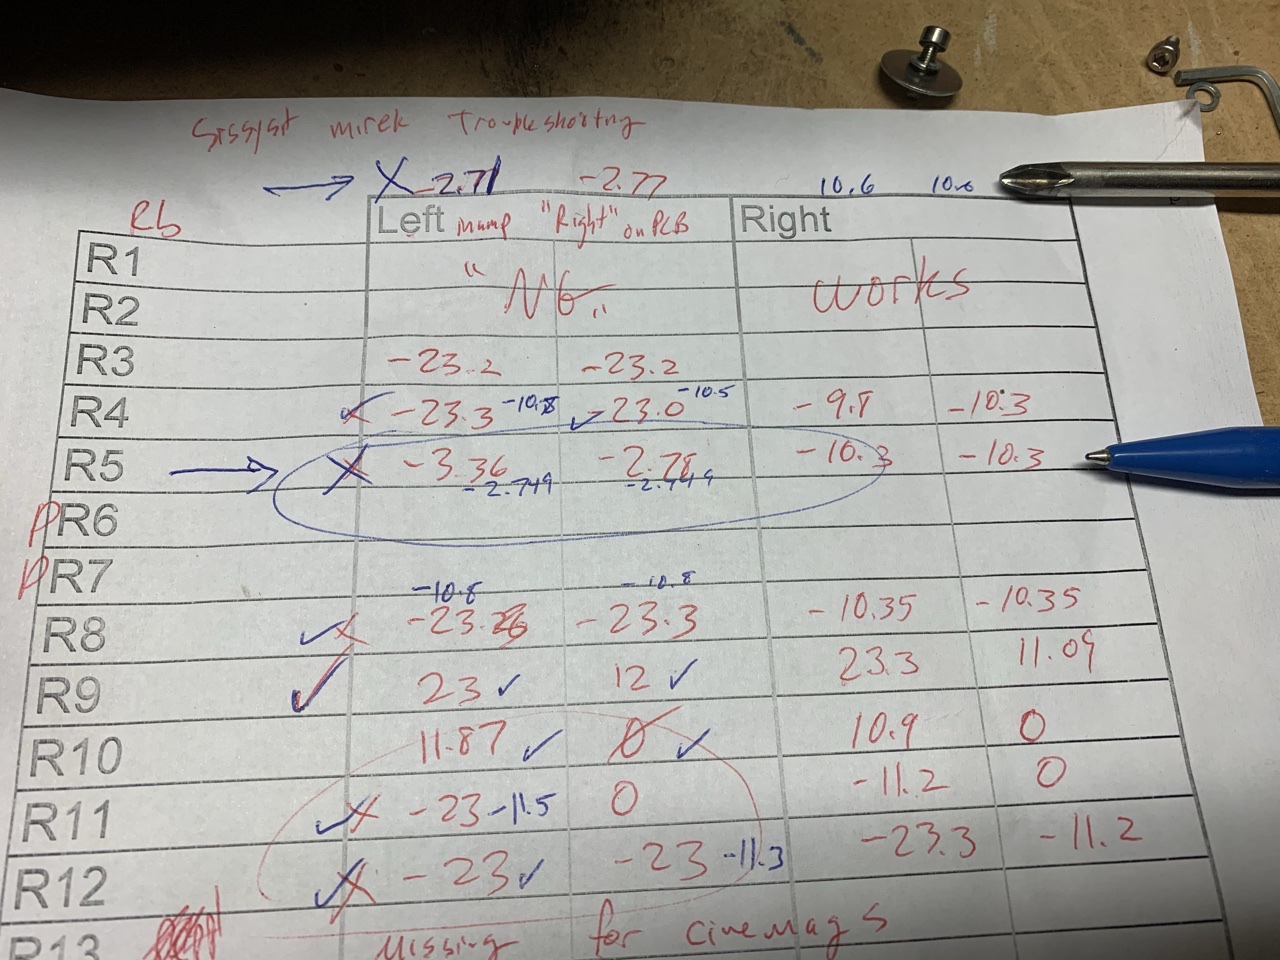 Troubleshooting
X -2.71 -2.77 10.6 10.6
Rb Left "Right" on PCB Right
R1
"NG" works
R2
R3 -23.2 -23.2
R4 -23.3 -10.8 -23.0 -10.5 -9.8 -10.3
R5 X -3.36 -2.78 -10.3 -10.3
-2.749
PR6
PR7
-10.8 -10.8
R8 X -23.3 -10.35 -10.35
R9 ✓ 23 ✓ 12 ✓ 23.3 11.09
R10 11.87 ✓ 0 ✓ 10.9 0
R11 ✓ X -23 -11.5 0 -11.2 0
R12 ✓ X -23 ✓ -23 -11.3 -23.3 -11.2
R13 Missing for cinemags